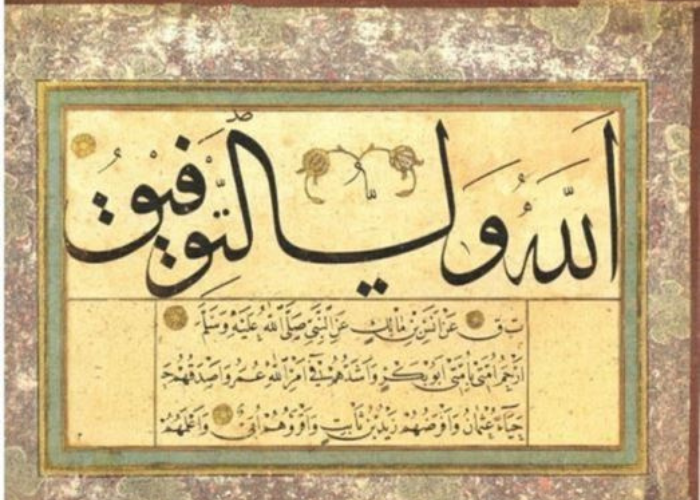 اَللّٰهُ وَلِيُّ التَّوْفِيقِ
ت ق عَنْ اَنَسِ بْنِ مَالِكٍ عَنِ النَّبِيِّ صَلَّى اللّٰهُ عَلَيْهِ وَسَلَّمَ
اَرْحَمُ اُمَّتِي بِاُمَّتِي اَبُو بَكْرٍ وَاَشَدُّهُمْ فِي اَمْرِ اللّٰهِ عُمَرُ وَاَصْدَقُهُمْ
حَيَاءً عُثْمَانُ وَاَفْرَضُهُمْ زَيْدُ بْنُ ثَابِتٍ وَاَقْرَؤُهُمْ اُبَيٌّ وَاَعْلَمُهُمْ